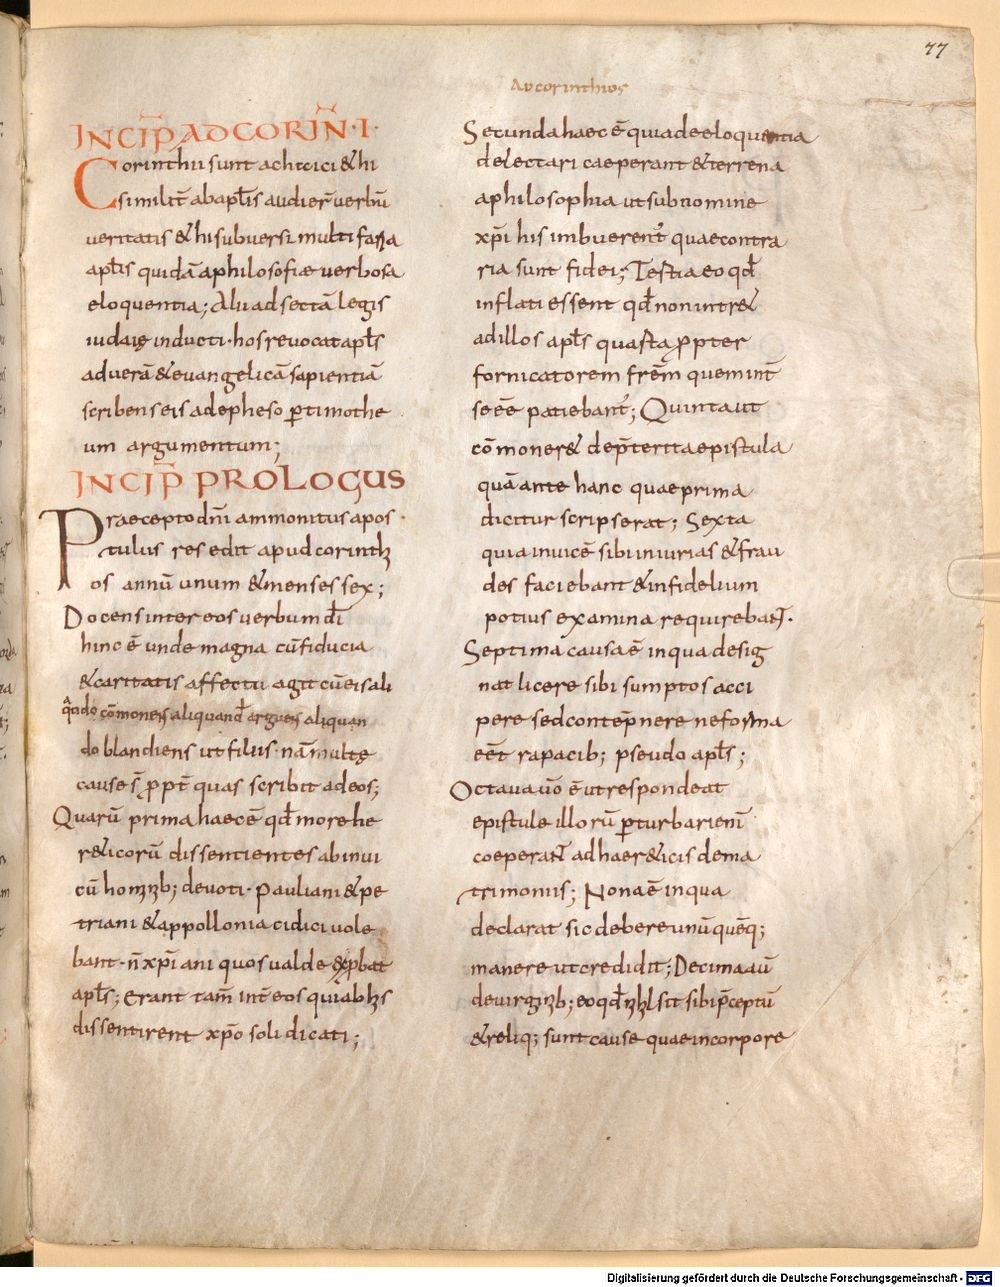 77
Ad corinthios
INCIP̄ AD CORIN̄·I·
Corinthii sunt acheici & hi
similit̄ ab apl̄is audier̄ verbū
veritatis & hi subversi multifarıa
apl̄is quidā a philosofiæ verbosa
eloquentia; Alii ad sectā legis
iudaię inducti· hos revocat apl̄s
ad verā & evangelicā sapientiā
scribens eis ad epheso p̄ timothe
um argumentum;
INCIP̄ PROLOGUS
Praecepto dn̄i ammonitus apos
tulus resedit apud corinthi
os annū unum & menses sex;
Docens inter eos verbum dī
hinc ē unde magna cū fiducia
& caritatis affectu agit cū eis ali
q̄ndo cōmonens aliquand̄ arguens aliquan
do blandiens ut filius· nā multę
cause s̄ ꝓpt̄ quas scribit ad eos;
Quarū prima haec ē qd̄ more he
r&icorū dissentientes ab invi
cū hominib; devoti· Pauliani & pe
triani & appolloniacı dici vole
bant· n̄ xp̄iani quos valde exp̄bat
apl̄s; erant tam̄ int̄ eos qui ab his
dissentirent xp̄o soli dicati;
Secunda haec ē quia de eloquentia
delectari caeperant & terrena
a philosophia ut sub nomine
xp̄i his imbuerent̄ quae contra
ria sunt fidei; Testia eo qd̄
inflati essent qd̄ non intr&
ad illos apl̄s quasta ꝓpter
fornicatorem frēm quem int̄
se eē patiebant̄; Quinta ut
cōmoner& de p̄terita epistula
quā ante hanc quae prima
dicitur scripserat; Sexta
quia invicē sibi iniurias & frau
des faciebant & infidelium
potius examina requirebant.
Septima causa ē in qua desig
nat licere sibi sumptos acci
pere sed contēpnere ne forma
eēt rapacib; pseudo apl̄s;
Octava ū̄o ē ut respondeat
epistule illorū p̄turbari enī
coeperant ad haer&icis de ma
trimoniis; Nona ē in qua
declarat sic debere unū quēq;
manere ut credidit; Decima aū
de virginib; eo qd̄ nihil sit sibi p̄ceptū
& reliq; sunt cause quae in corpore
Digitalisierung gefördert durch die Deutsche Forschungsgemeinschaft - DFG